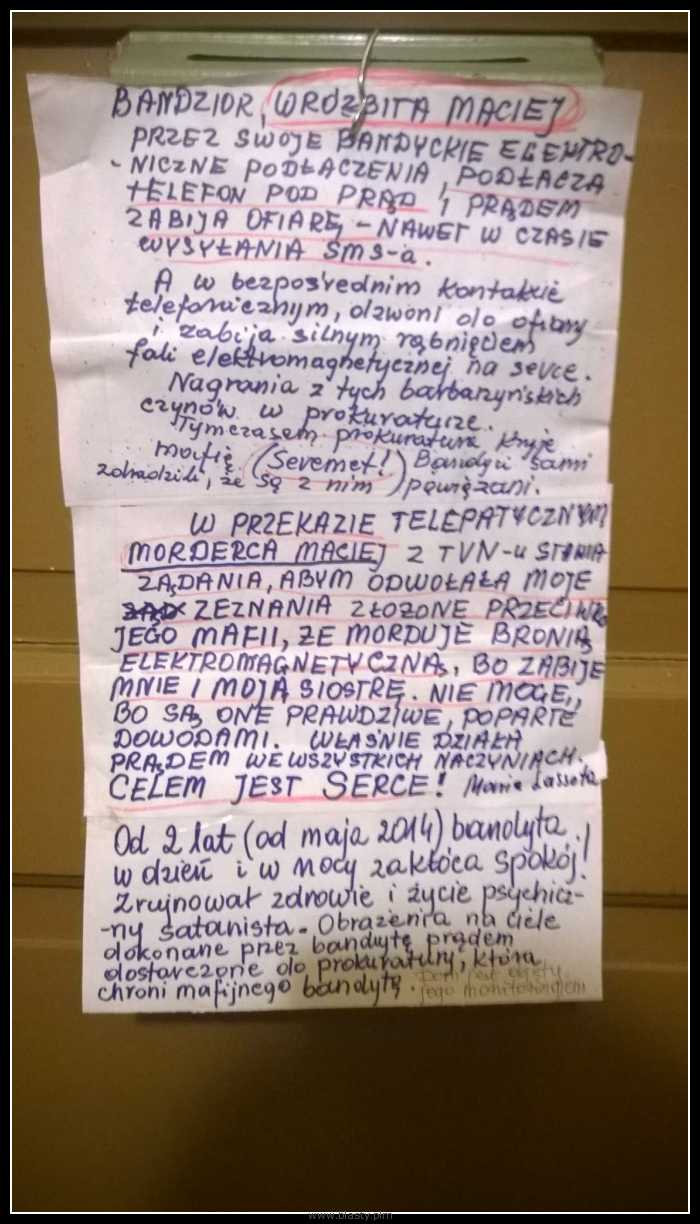 BANDZIOR, WRÓŻBITA MACIEJ
PRZEZ SWOJE BANDYCKIE ELEKTRO-
- NICZNE PODŁĄCZENIA, PODŁĄCZA
TELEFON POD PRĄD I PRĄDEM
ZABIJA OFIARĘ, - NAWET W CZASIE
WYSYŁANIA SMS-a.
A w bezpośrednim kontakcie
telefonicznym, dzwoni do ofiary
i zabija silnym rąbnięciem
fali elektromagnetycznej na serce.
Nagrania z tych barbarzyńskich
czynów w prokuraturze.
Tymczasem prokuratura kryje
mafię (Seremet!) Bandyci sami
zdradzili, że są z nim powiązani.
W PRZEKAZIE TELEPATYCZNYM
MORDERCA MACIEJ Z TVN-u STAWIA
ŻĄDANIA, ABYM ODWOŁAŁA MOJE
ZEZNANIA ZŁOŻONE PRZECIWKO
JEGO MAFII, ŻE MORDUJE BRONIĄ
ELEKTROMAGNETYCZNĄ, BO ZABIJE
MNIE I MOJĄ SIOSTRĘ. NIE MOGĘ,
BO SĄ ONE PRAWDZIWE, POPARTE
DOWODAMI. WŁAŚNIE DZIAŁA
PRĄDEM WE WSZYSTKICH NACZYNIACH.
CELEM JEST SERCE! Maria Lassota
Od 2 lat (od maja 2014) bandyta
w dzień i w nocy zakłóca spokój!
Zrujnował zdrowie i życie psychicz-
-ny satanista. Obrażenia na ciele
dokonane przez bandytę prądem
dostarczone do prokuratury, która
chroni mafijnego bandytę.
Dom jest objęty
jego monitoringiem